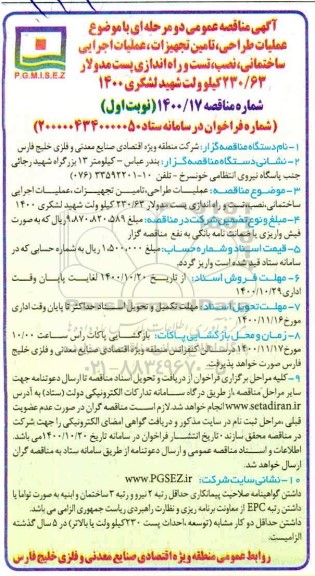 آگهی مناقصه عمومی دو مرحله ای با موضوع
عملیات طراحی، تامین تجهیزات، عملیات اجرایی
ساختمانی، نصب، تست و راه اندازی پست مدولار
۲۳۰/۶۳ کیلو ولت شهید لشکری ۱۴۰۰
P.G.M.I.S.E.Z
شماره مناقصه ۱۴۰۰/۱۷ (نوبت اول)
(شماره فراخوان در سامانه ستاد ۲۰۰۰۰۰۴۳۴۰۰۰۰۰۵۰)
۱- نام دستگاه مناقصه گزار: شرکت منطقه ویژه اقتصادی صنایع معدنی و فلزی خلیج فارس
۲- نشانی دستگاه مناقصه گزار: بندرعباس - کیلومتر ۱۳ بزرگراه شهید رجائی
جنب پاسگاه نیروی انتظامی خونسرخ - تلفن ۱۰-۳۳۵۹۲۲۰۱ (۰۷۶)
۳- موضوع مناقصه: عملیات طراحی، تامین تجهیزات، عملیات اجرایی
ساختمانی، نصب، تست و راه اندازی پست مدولار ۲۳۰/۶۳ کیلو ولت شهید لشکری ۱۴۰۰
۴- مبلغ و نوع تضمین شرکت در مناقصه: مبلغ ۹،۸۷۰،۸۲۰،۵۸۹ ریال که به صورت
فیش واریزی یا ضمانت نامه بانکی به نفع مناقصه گزار
۵- قیمت اسناد و شماره حساب: مبلغ ۱،۵۰۰،۰۰۰ ریال به شماره حسابی که در
سامانه ستاد قید شده است واریز گردد.
۶- مهلت فروش اسناد: از تاریخ ۱۴۰۰/۱۰/۲۰ لغایت پایان وقت
اداری ۱۴۰۰/۱۰/۲۹
۷- مهلت تحویل اسناد: مهلت تکمیل و تحویل اسناد حداکثر تا پایان وقت اداری
مورخ ۱۴۰۰/۱۱/۱۶
۸- زمان و محل بازگشایی پاکات: بازگشایی پاکات راس ساعت ۱۰/۰۰
مورخ ۱۴۰۰/۱۱/۱۷ در سالن کنفرانس منطقه ویژه اقتصادی صنایع معدنی و فلزی خلیج
فارس صورت خواهد پذیرفت.
۹- کلیه مراحل برگزاری فراخوان از دریافت و تحویل اسناد مناقصه تا ارسال دعوتنامه جهت
سایر مراحل مناقصه، از طریق درگاه سامانه تدارکات الکترونیکی دولت (ستاد) به آدرس
www.setadiran.ir انجام خواهد شد. لازم است مناقصه گران در صورت عدم عضویت
قبلی، مراحل ثبت نام در سایت مذکور و دریافت گواهی امضای الکترونیکی را جهت شرکت
در مناقصه محقق سازند. تاریخ انتشار فراخوان در سامانه تاریخ ۱۴۰۰/۱۰/۲۰ می باشد.
اطلاعات و اسناد مناقصه عمومی و ارسال دعوتنامه از طریق سامانه ستاد به مناقصه گران
ارسال خواهد شد.
۱۰- نشانی سایت شرکت: www.PGSEZ.ir
داشتن گواهینامه صلاحیت پیمانکاری حداقل رتبه ۲ نیرو و رتبه ۲ ساختمان و ابنیه به صورت تواما یا
داشتن رتبه EPC از معاونت برنامه ریزی و نظارت راهبردی ریاست جمهوری الزامی می باشد.
داشتن حداقل دو کار مشابه (توسعه احداث پست ۲۳۰ کیلو ولت یا بالاتر) در ۵ سال گذشته
الزامیست.
روابط عمومی منطقه ویژه اقتصادی صنایع معدنی و فلزی خلیج فارس